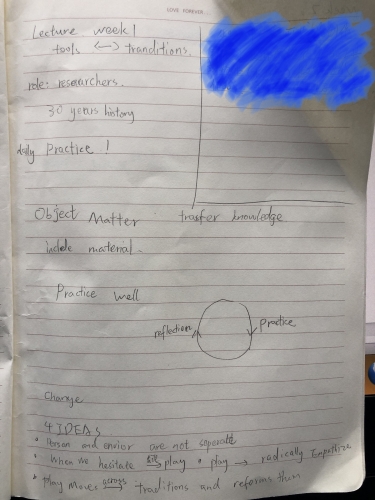 LOVE FOREVER
Lecture week 1
tools <--> tranditions.
role: researchers.
30 years history
daily Practice !
Object Matter transfer knowledge
include material.
Practice well
reflection Practice
Change
4 IDEAS
• Person and are not seperate
• when we hesitate play • play → radically
* play moves across traditions and reforms them